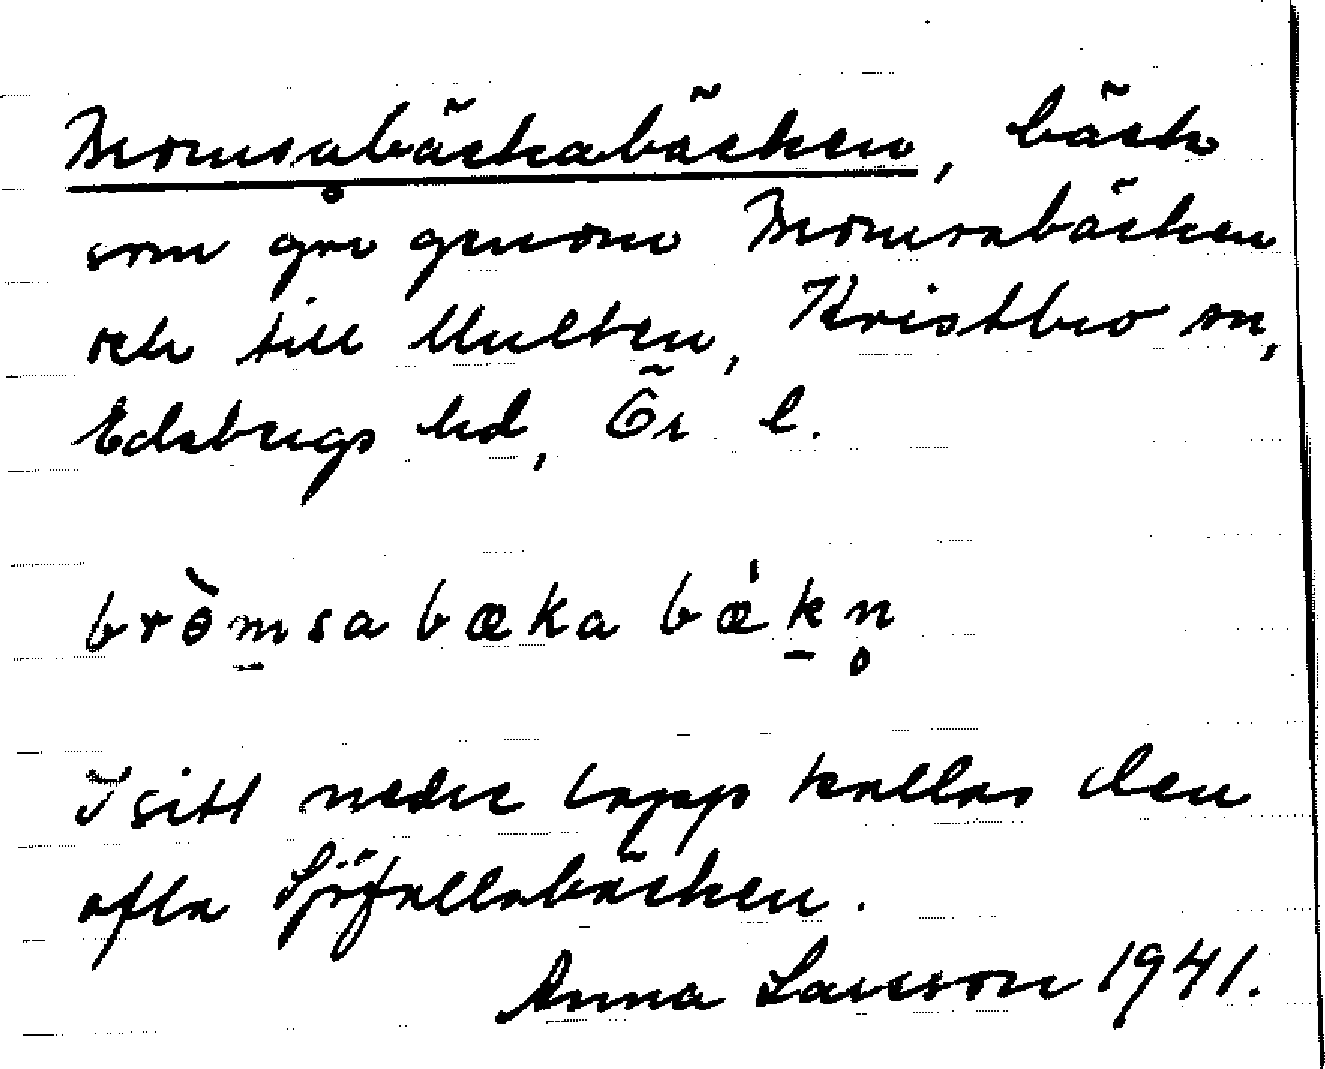 Bromsabäckabäcken, bäck
som går genom Bromsabäcken
och till Multen, Kvistbro sn,
Edsbergs hd, Ör l.
brò̱msabækabǽḵn̥
I sitt nedre lopp kallas den
ofta Sjöfallabäcken.
Anna Larsson 1941.